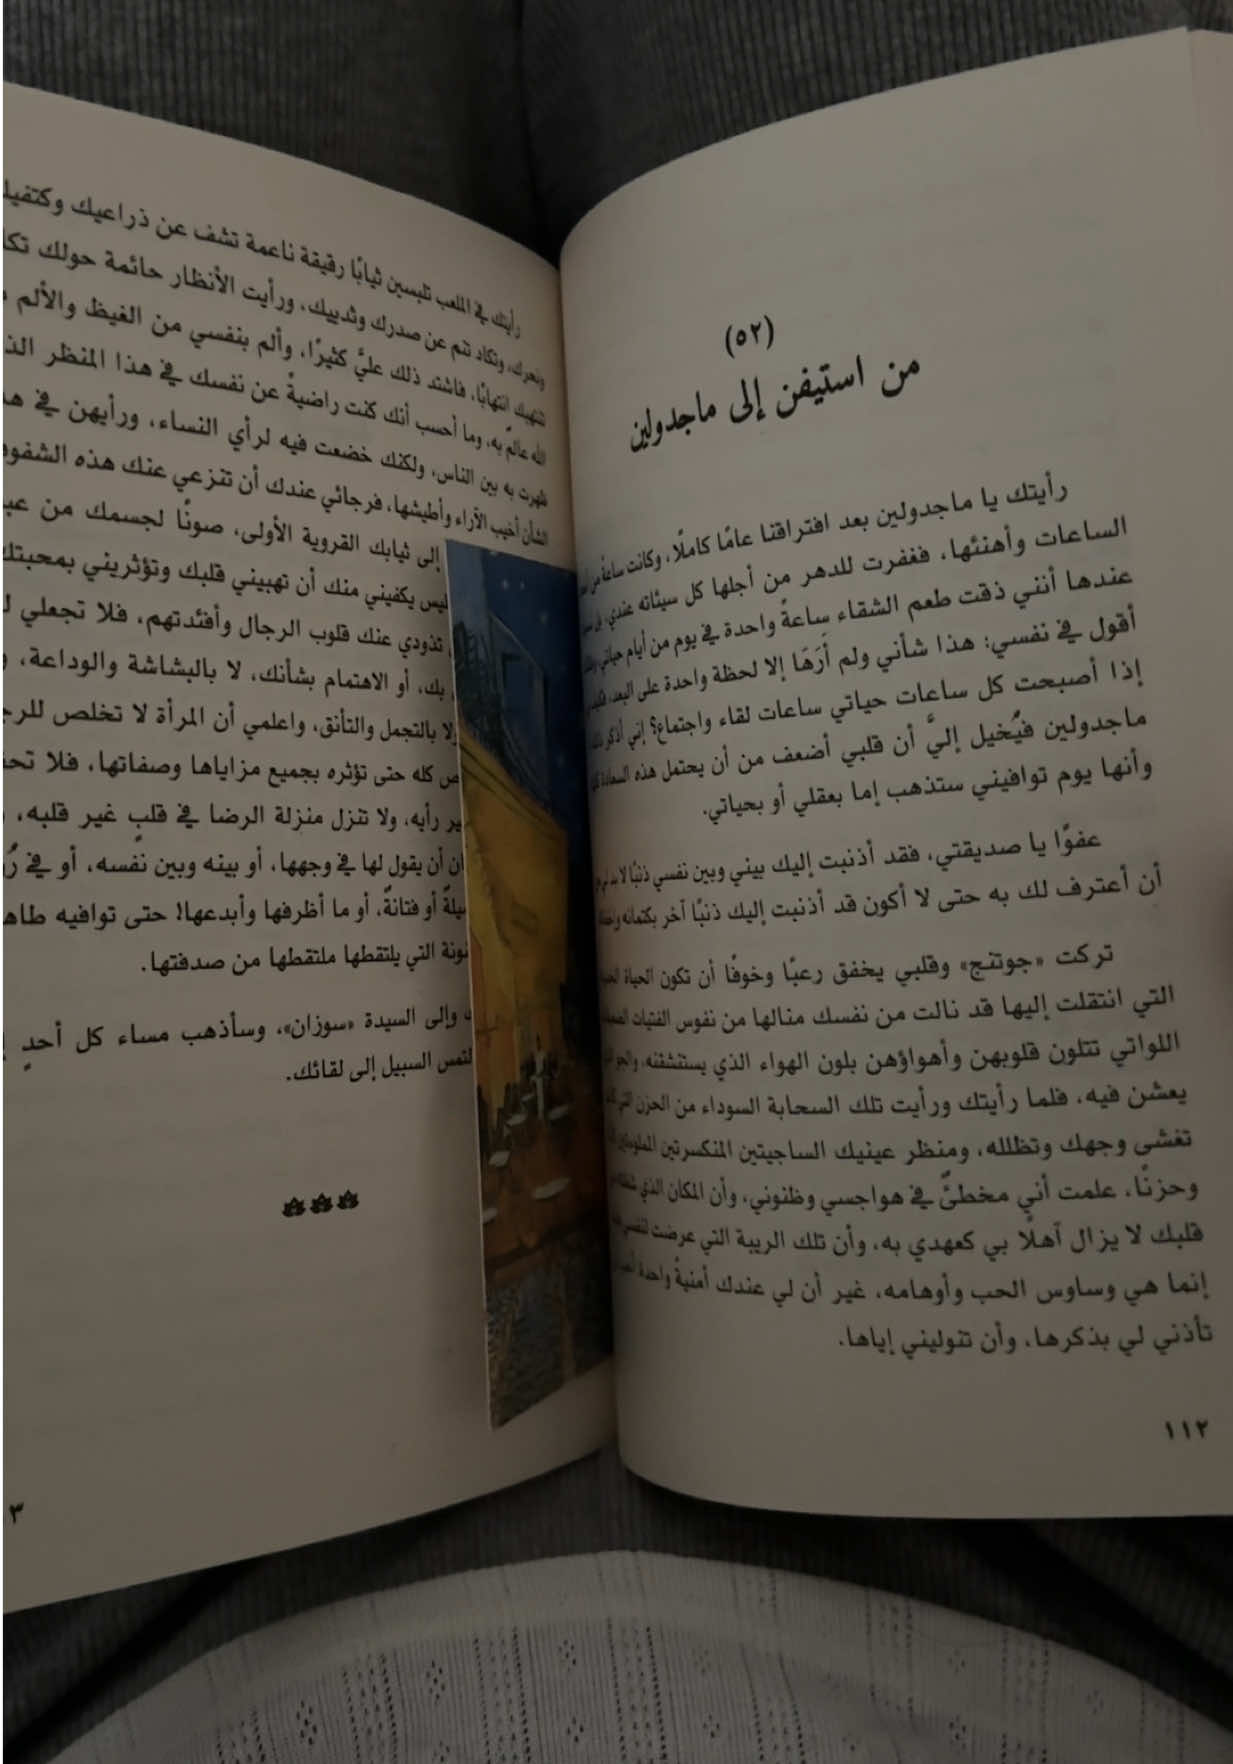 (٥٢)
من استيفن إلى ماجدولين
رأيتك يا ماجدولين بعد افتراقنا عامًا كاملًا، وكانت ساعةً من
الساعات وأهنئها، فغفرت للدهر من أجلها كل سيئاته عندي،
عندها أنني ذقت طعم الشقاء ساعةً واحدة في يوم من أيام حياتي،
أقول في نفسي: هذا شأني ولم أَرَهَا إلا لحظة واحدة على البعد،
إذا أصبحت كل ساعات حياتي ساعات لقاء واجتماع؟ إني أذكر
ماجدولين فيُخيل إليَّ أن قلبي أضعف من أن يحتمل هذه السعادة
وأنها يوم توافيني ستذهب إما بعقلي أو بحياتي.
عفوًا يا صديقتي، فقد أذنبت إليك بيني وبين نفسي ذنبًا لا بد لي
أن أعترف لك به حتى لا أكون قد أذنبت إليك ذنبًا آخر بكتمانه
تركت «جوتنج» وقلبي يخفق رعبًا وخوفًا أن تكون الحياة
التي انتقلت إليها قد نالت من نفسك منالها من نفوس الفتيات
اللواتي تتلون قلوبهن وأهواؤهن بلون الهواء الذي يستنشقنه، والجو
يعشن فيه، فلما رأيتك ورأيت تلك السحابة السوداء من الحزن التي
تغشى وجهك وتظلله، ومنظر عينيك الساجيتين المنكسرتين
وحزنًا، علمت أني مخطئٌ في هواجسي وظنوني، وأن المكان الذي
قلبك لا يزال آهلًا بي كعهدي به، وأن تلك الريبة التي عرضت لنفسي
إنما هي وساوس الحب وأوهامه، غير أن لي عندك أمنيةً واحدة
تأذني لي بذكرها، وأن تنوليني إياها.
١١٢
رأيتك في الملعب تلبسين ثيابًا رقيقة ناعمة تشف عن ذراعيك
ونحرك، وتكاد تنم عن صدرك وثدييك، ورأيت الأنظار حائمة حولك
تنتهبك انتهابًا، فاشتد ذلك عليَّ كثيرًا، وألم بنفسي من الغيظ والألم
الله عالمٌ به، وما أحسب أنك كنت راضيةً عن نفسك في هذا المنظر
ظهرت به بين الناس، ولكنك خضعت فيه لرأي النساء، ورأيهن في
الشأن أخيب الآراء وأطيشها، فرجائي عندك أن تنزعي عنك هذه
إلى ثيابك القروية الأولى، صونًا لجسمك من
ليس يكفيني منك أن تهبيني قلبك وتؤثريني بمحبتك
تذودي عنك قلوب الرجال وأفئدتهم، فلا تجعلي
بك، أو الاهتمام بشأنك، لا بالبشاشة والوداعة،
ولا بالتجمل والتأنق، واعلمي أن المرأة لا تخلص
كله حتى تؤثره بجميع مزاياها وصفاتها، فلا
رأيه، ولا تنزل منزلة الرضا في قلبٍ غير قلبه،
أن يقول لها في وجهها، أو بينه وبين نفسه، أو في
أو فتانةً، أو ما أظرفها وأبدعها! حتى توافيه
التي يلتقطها ملتقطها من صدفتها.
وإلى السيدة «سوزان»، وسأذهب مساء كل أحدٍ
السبيل إلى لقائك.
٣